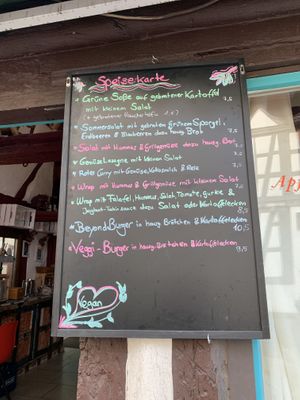 Speisekarte
Grüne Soße auf gebratener Kartoffel
mit kleinem Salat 7,5
(+ gebratener Räuchertofu 1,50)
Sommersalat mit gebratenem grünem Spargel,
Erdbeeren & Blaubeeren dazu hausg. Brot 7,5
Salat mit Hummus & Grillgemüse dazu hausg. Brot
7,5
Gemüselasagne mit kleinem Salat 7,5
Rotes Curry mit Gemüse, Kokosmilch & Reis 7,5
Wrap mit Hummus & Grillgemüse mit kleinem Salat
7,5
Wrap mit Falafel, Hummus, Salat, Tomate, Gurke &
Joghurt-Tahin sauce dazu Salat oder Kartoffelecken
8,5
Beyond Burger in hausg. Brötchen & Kartoffelecken
10,5
Veggi-Burger in hausg. Brötchen & Kartoffelecken
9,5
Vegan